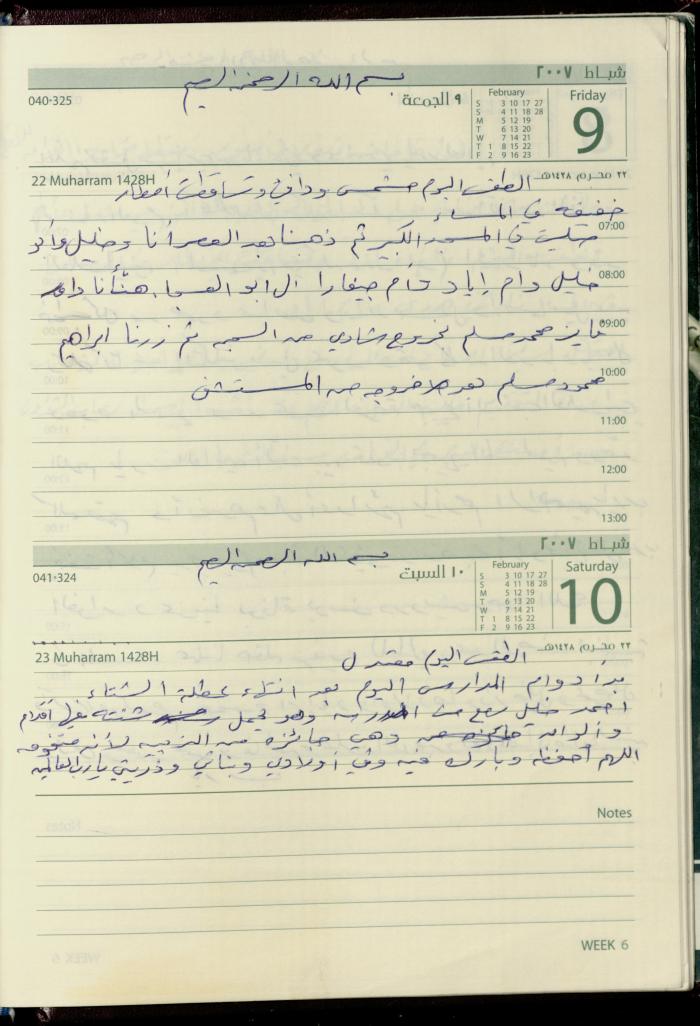 شباط ٢٠٠٧
بسم الله الرحمن الرحيم
040-325
٩ الجمعة
February
S 3 10 17 27
S 4 11 18 28
M 5 12 19
T 6 13 20
W 7 14 21
T 1 8 15 22
F 2 9 16 23
Friday
9
22 Muharram 1428H
٢٢ محرم ١٤٢٨هـ
الطقس اليوم مشمس ودافئ وتساقطت أمطار
خفيفة في المساء
07:00
صليت في المسجد الكبير ثم ذهبنا بعد العصر أنا وخليل وأم
08:00
خليل وام إياد وام جيفارا ال ابو هنأنا
09:00
فايز محمد مسلم بخروج شادي من السجن ثم زرنا ابراهيم
10:00
محمود مسلم بعد خروجه من المستشفى
11:00
12:00
13:00
شباط ٢٠٠٧
بسم الله الرحمن الرحيم
041-324
١٠ السبت
February
S 3 10 17 27
S 4 11 18 28
M 5 12 19
T 6 13 20
W 7 14 21
T 1 8 15 22
F 2 9 16 23
Saturday
10
23 Muharram 1428H
٢٣ محرم ١٤٢٨هـ
الطقس اليوم معتدل
بدأ دوام المدارس اليوم بعد انتهاء عطلة الشتاء
احمد خليل رجع من المدرسة وهو يحمل شنته فيها أقلام
والوان وهي جائزة من التربية لأنه متفوق
اللهم أحفظه وبارك فيه وفي أولادي وبناتي وذريتي يا رب العالمين
Notes
WEEK 6